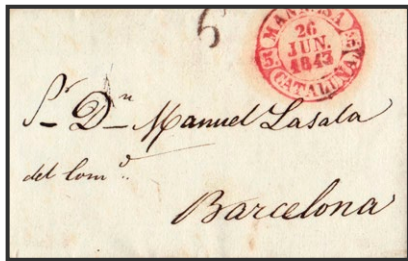 6
MANRESA
26
JUN.
1843
CATALUÑA
Sr. Dn Manuel Lasala
del Comº.
Barcelona